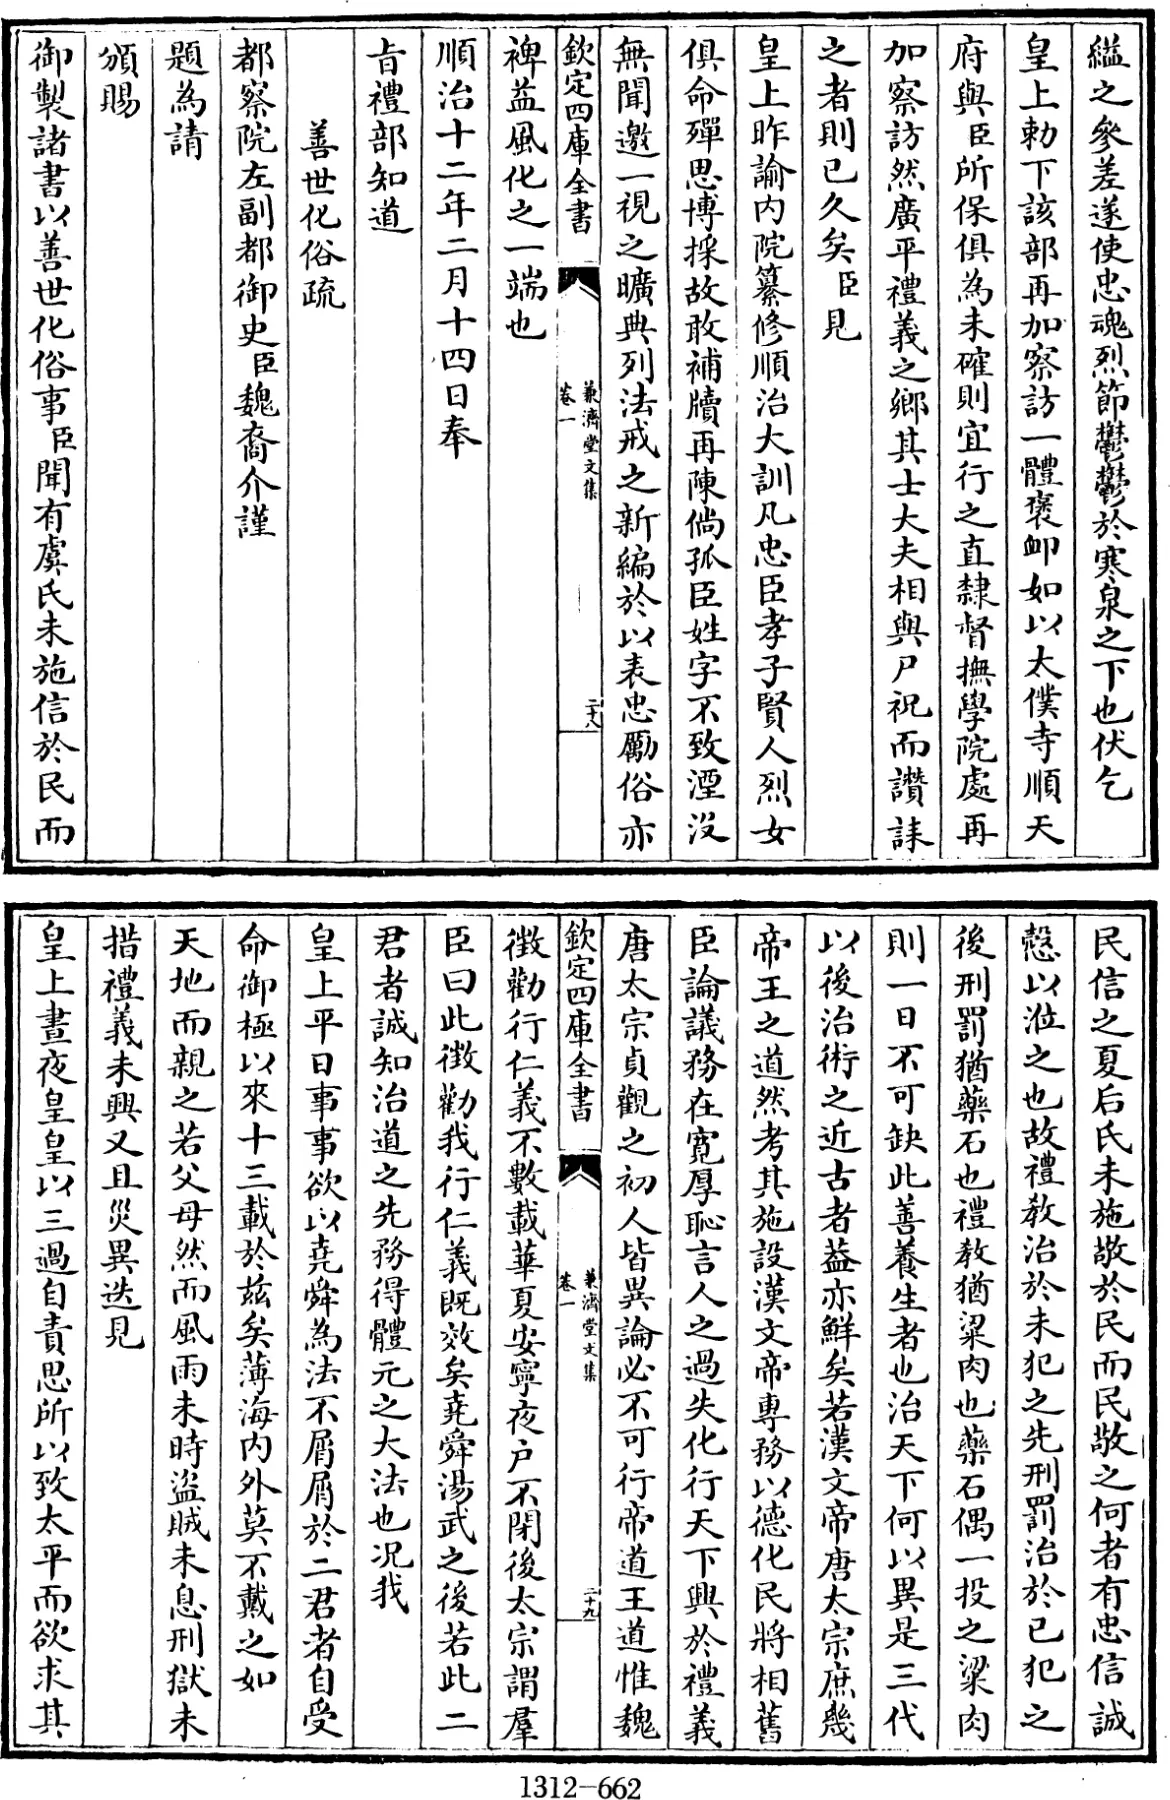 繼之參差遂使忠魂烈節鬱鬱於寒泉之下也伏乞
皇上勅下該部再加察訪一體褒卹如以太僕寺順天
府與臣所保俱為未確則宜行之直隸督撫學院處再
加察訪然廣平禮義之鄉其士大夫相與尸祝而讚誄
之者則已久矣臣見
皇上昨諭内院纂修順治大訓凡忠臣孝子賢人烈女
俱命殫思博採故敢補牘再陳倘孤臣姓字不致湮没
無聞邀一視之曠典列法戒之新編於以表忠勵俗亦
欽定四庫全書 兼濟堂文集 卷一 二十八
裨益風化之一端也
順治十二年二月十四日奉
㫖禮部知道
善世化俗疏
都察院左副都御史臣魏裔介謹
題為請
頒賜
御製諸書以善世化俗事臣聞有虞氏未施信於民而
民信之夏后氏未施敬於民而民敬之何者有忠信誠
慤以涖之也故禮教治於未犯之先刑罰治於已犯之
後刑罰猶藥石也禮教猶粱肉也藥石偶一投之粱肉
則一日不可缺此善養生者也治天下何以異是三代
以後治術之近古者葢亦鮮矣若漢文帝唐太宗庶幾
帝王之道然考其施設漢文帝專務以德化民將相舊
臣論議務在寛厚恥言人之過失化行天下興於禮義
唐太宗貞觀之初人皆異論必不可行帝道王道惟魏
欽定四庫全書 兼濟堂文集 卷一 二十九
徵勸行仁義不數載華夏安寧夜户不閉後太宗謂羣
臣曰此徵勸我行仁義既效矣堯舜湯武之後若此二
君者誠知治道之先務得體元之大法也况我
皇上平日事事欲以堯舜為法不屑屑於二君者自受
命御極以來十三載於兹矣薄海内外莫不戴之如
天地而親之若父母然而風雨未時盜賊未息刑獄未
措禮義未興又且災異迭見
皇上晝夜皇皇以三過自責思所以致太平而欲求其
1312-662